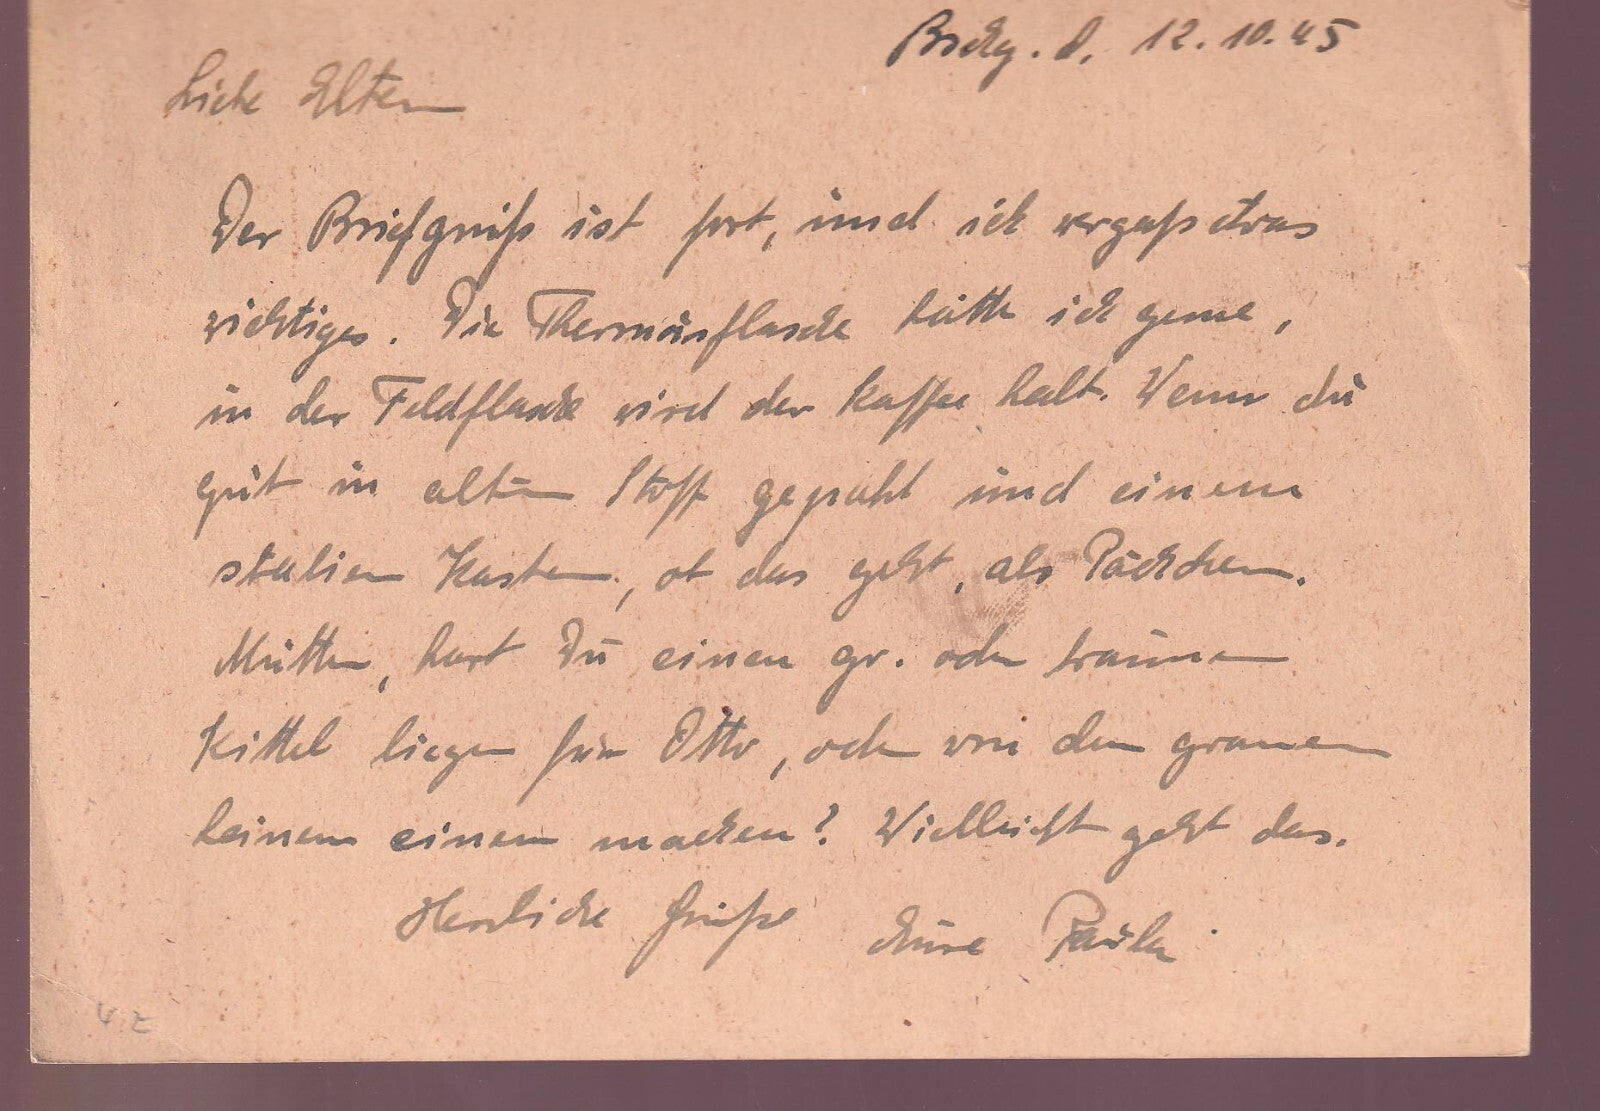 Bickg. d. 12.10.45
Liebe Eltern
Der Briefgruß ist fort, und ich vergaß etwas
wichtiges. Die Thermosflasche hätte ich gerne,
in der Feldflasche wird der Kaffee kalt. Wenn du
gut in alten Stoff gepakt und einem
stabilen Kasten, ob das geht, als Päckchen.
Mutter, hast Du einen gr. oder braunen
Kittel liegen für Otto, oder von den grauen
keinem einem machen? Vielleicht geht das.
Herzliche Grüße Eure Paula